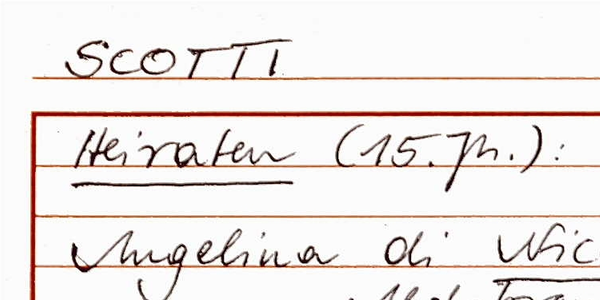 SCOTTI
Heiraten (15. Jh.):
Angelina di Nic